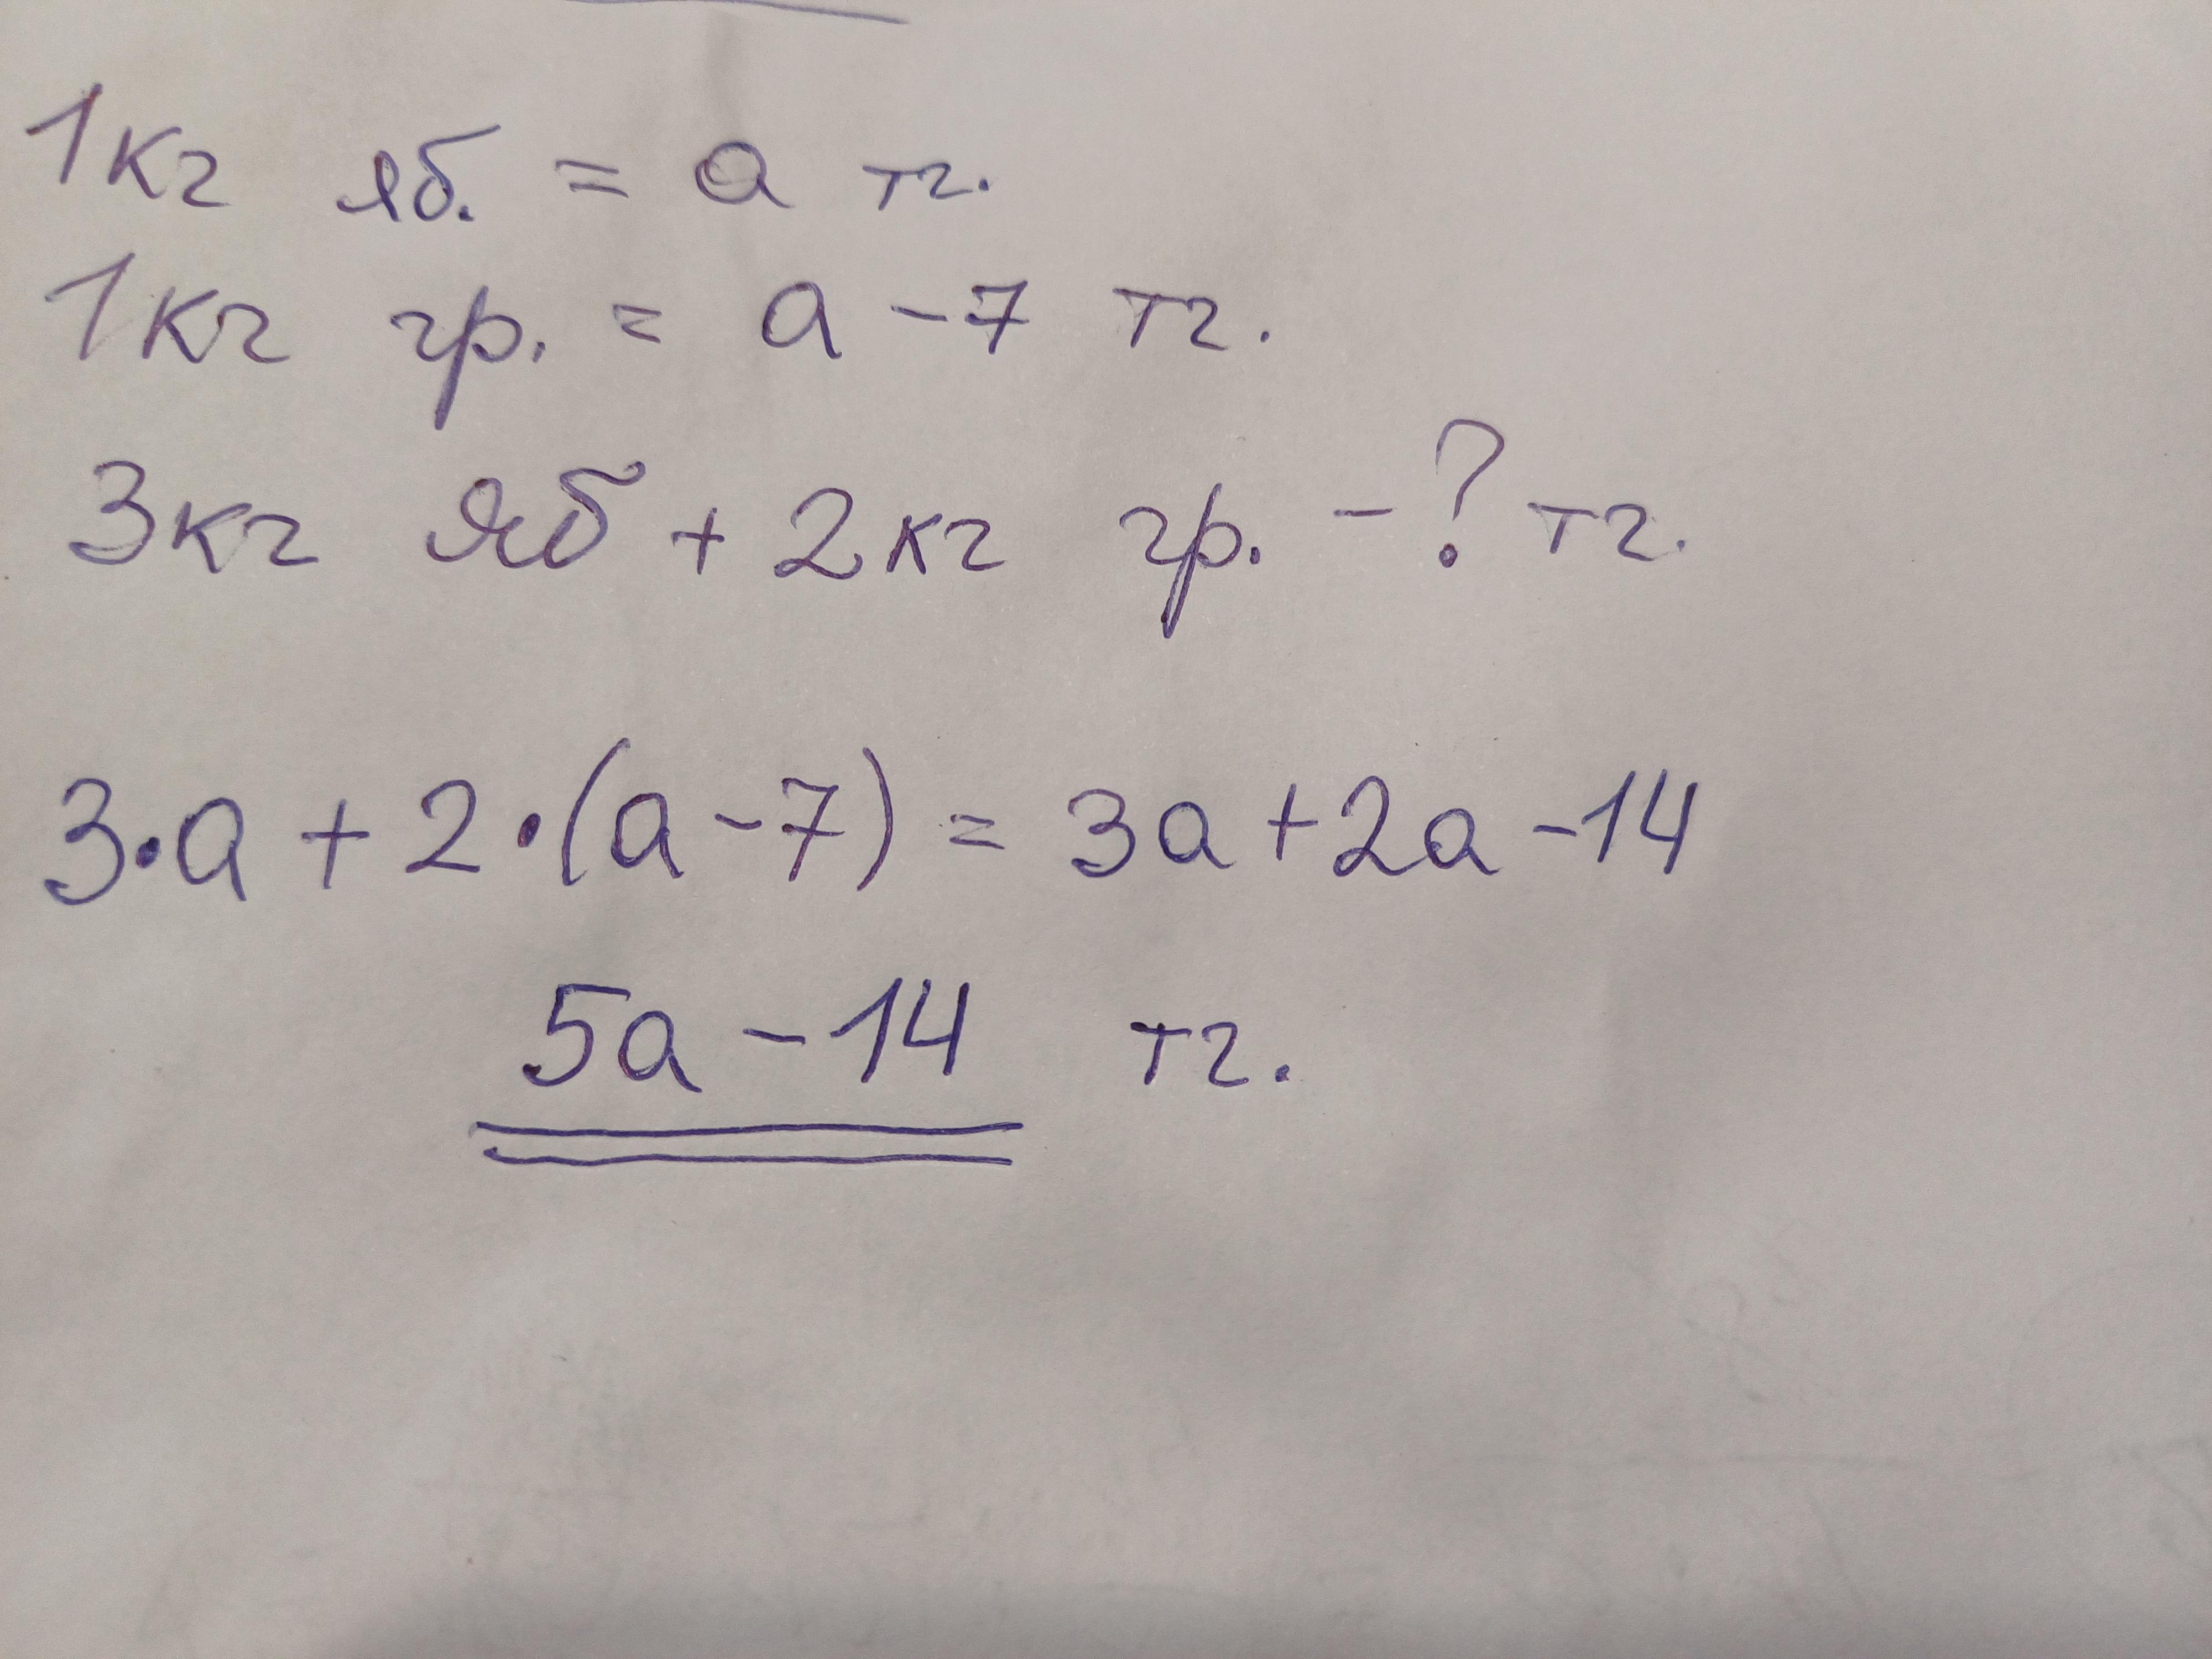 1кг яб. = а тг.
1кг гр. = а - 7 тг.
3кг яб + 2кг гр. - ? тг.
3·а + 2·(а - 7) = 3а + 2а - 14
5а - 14 тг.